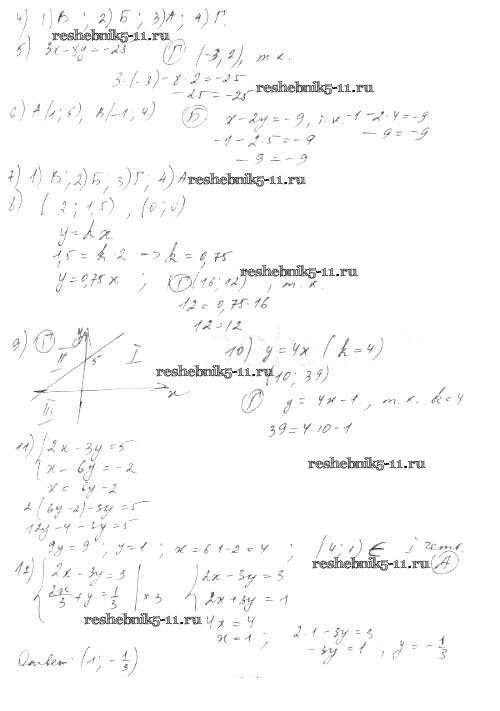 4) 1) В ; 2) Б ; 3) А ; 4) Г.
reshebnik5-11.ru
5) 3x-8y=-25 Г (-3; 2), т.к.
3·(-3)-8·2=-25
reshebnik5-11.ru
-25=-25
6) A(1; 5), B(-1; 4) Б x-2y=-9, т.к. -1-2·4=-9
-1-2·5=-9 -9=-9
-9=-9
7) 1) В; 2) Б; 3) Г; 4) А
reshebnik5-11.ru
8) (2; 1,5), (0; 0)
y=kx
1,5=k·2 -> k=0,75
reshebnik5-11.ru
y=0,75x ; Г (16; 12), т.к.
12=0,75·16
12=12
9) Г y 5 I II III x
reshebnik5-11.ru
10) y=4x (k=4)
(10; 39)
Г y=4x-1, т.к. k=4
39=4·10-1
reshebnik5-11.ru
11) { 2x-3y=5
x-6y=-2
x=6y-2
2(6y-2)-3y=5
12y-4-3y=5
9y=9 ; y=1 ; x=6·1-2=4 ; (4; 1) ∈ 1 четв.
reshebnik5-11.ru
А
12) { 2x-3y=3 { 2x-3y=3
2x/3+y=1/3 | ×3 2x+3y=1
reshebnik5-11.ru
4x=4
x=1 ; 2·1-3y=3
-3y=1, y=-1/3
Ответ: (1; -1/3)